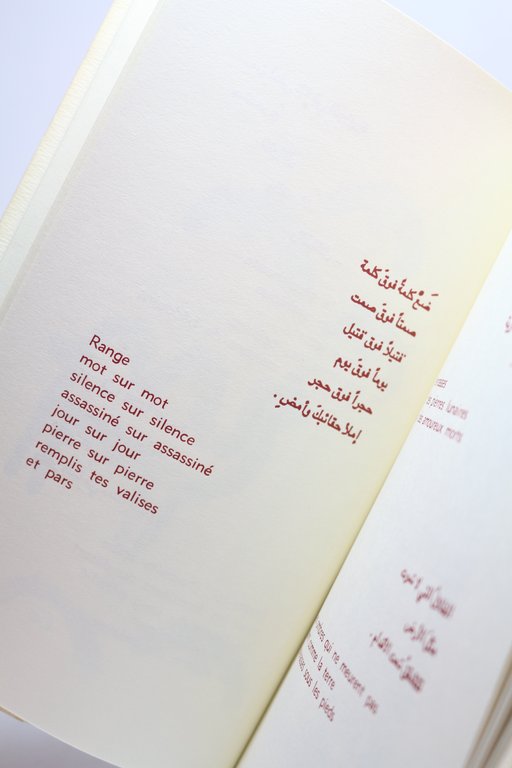 ضَعْ كلمةً فوقَ كلمة
صمتاً فوقَ صمت
قتيلاً فوق قتيل
يوماً فوقَ يوم
حجراً فوق حجر
إملأ حقائبكَ وامضِ.
Range
mot sur mot
silence sur silence
assassiné sur assassiné
jour sur jour
pierre sur pierre
remplis tes valises
et pars
lunaires
amoureux morts
qui ne meurent pas
comme la terre
sous les pieds